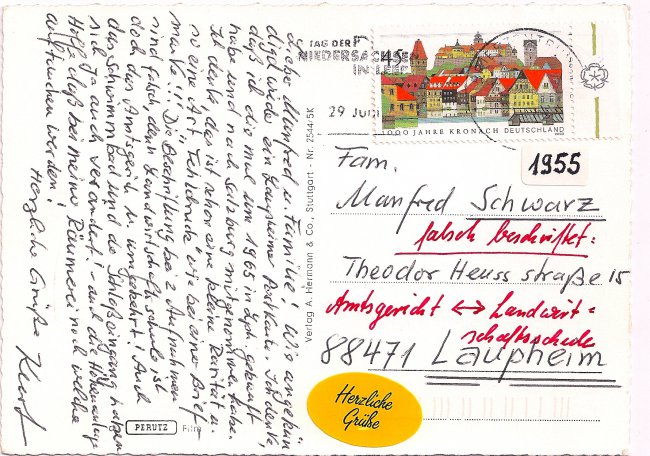 Liebe Manfred u. Familie! Wie angekün
digt wieder ein Laupheimer Postkarte. Ich denke,
daß ich die mal um 1965 in Lph. gekauft
habe und nach Salzburg mitgenommen habe.
Ich denke das ist schon eine kleine Rarität u.
so eine Art "Fehldruck" wie bei einer Brief-
marke!! Die Beschriftung bei 2 Aufnahmen
sind falsch, denn Landwirtschaftsschule ist
doch das Amtsgericht u. umgekehrt! Auch
das Schwimmbad und der Schloßeingang haben
sich ja auch verändert. - auf die
Hoffe daß bei meine Räumerei noch welche
auftauchen werden!
Herzliche Grüße Kurt
PERUTZ Film
Verlag A. Hermann & Co., Stuttgart - Nr. 2544/5K
TAG DER
NIEDERSACHSEN
IN LEER
29 Juni
45
1000 JAHRE KRONACH DEUTSCHLAND
1955
Fam.
Manfred Schwarz
falsch beschriftet:
Theodor Heuss straße 15
Amtsgericht ↔ Landwirt-
schaftsschule
88471 Laupheim
Herzliche
Grüße